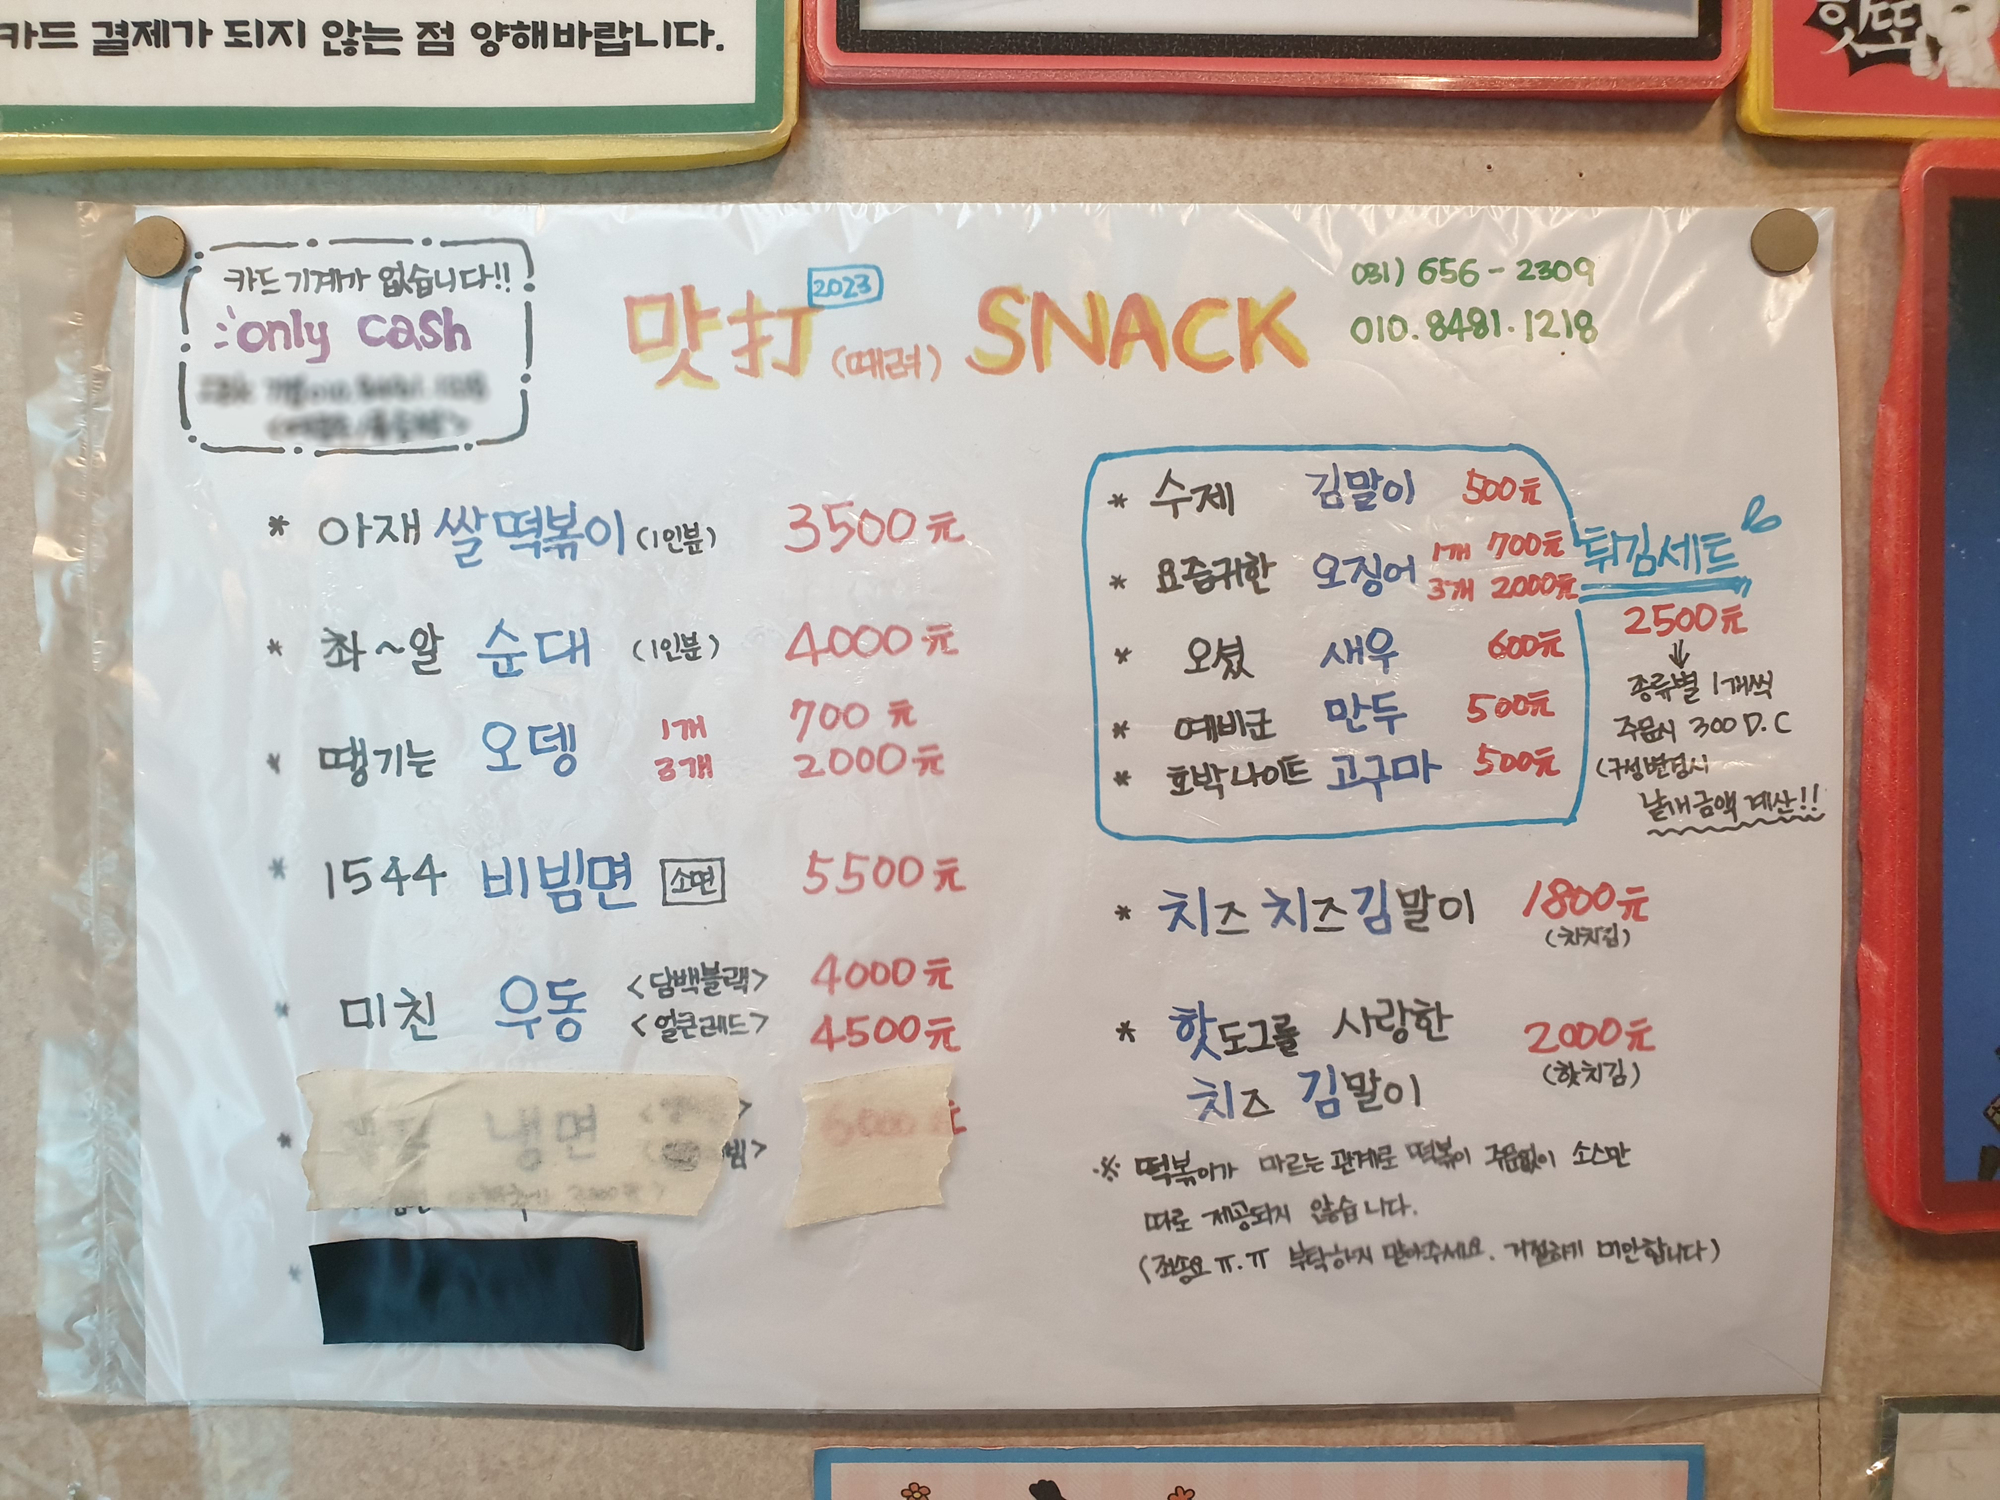 카드 결제가 되지 않는 점 양해바랍니다.
핫또
카드기계가 없습니다!!
only cash
맛打 (때려) SNACK
2023
031) 656-2309
010.8481.1218
* 아재 쌀떡볶이 (1인분) 3500元
* 촤~알 순대 (1인분) 4000元
* 땡기는 오뎅 1개 700元
3개 2000元
* 1544 비빔면 소면 5500元
* 미친 우동 <담백블랙> 4000元
<얼큰레드> 4500元
* 냉면
빔>
*
* 수제 김말이 500元
* 요즘귀한 오징어 1개 700元
3개 2000元
* 오셨 새우 600元
* 예비군 만두 500元
* 호박나이트 고구마 500元
튀김세트
2500元
종류별 1개씩
주문시 300 D.C
(구성변경시
낱개금액 계산!!
* 치즈 치즈김말이 1800元
(치치김)
* 핫도그를 사랑한 2000元
치즈 김말이 (핫치김)
※ 떡볶이가 마르는 관계로 떡볶이 주문없이 소스만
따로 제공되지 않습니다.
(죄송요 ㅠ.ㅠ 부탁하지 말아주세요. 거절하기 미안합니다)